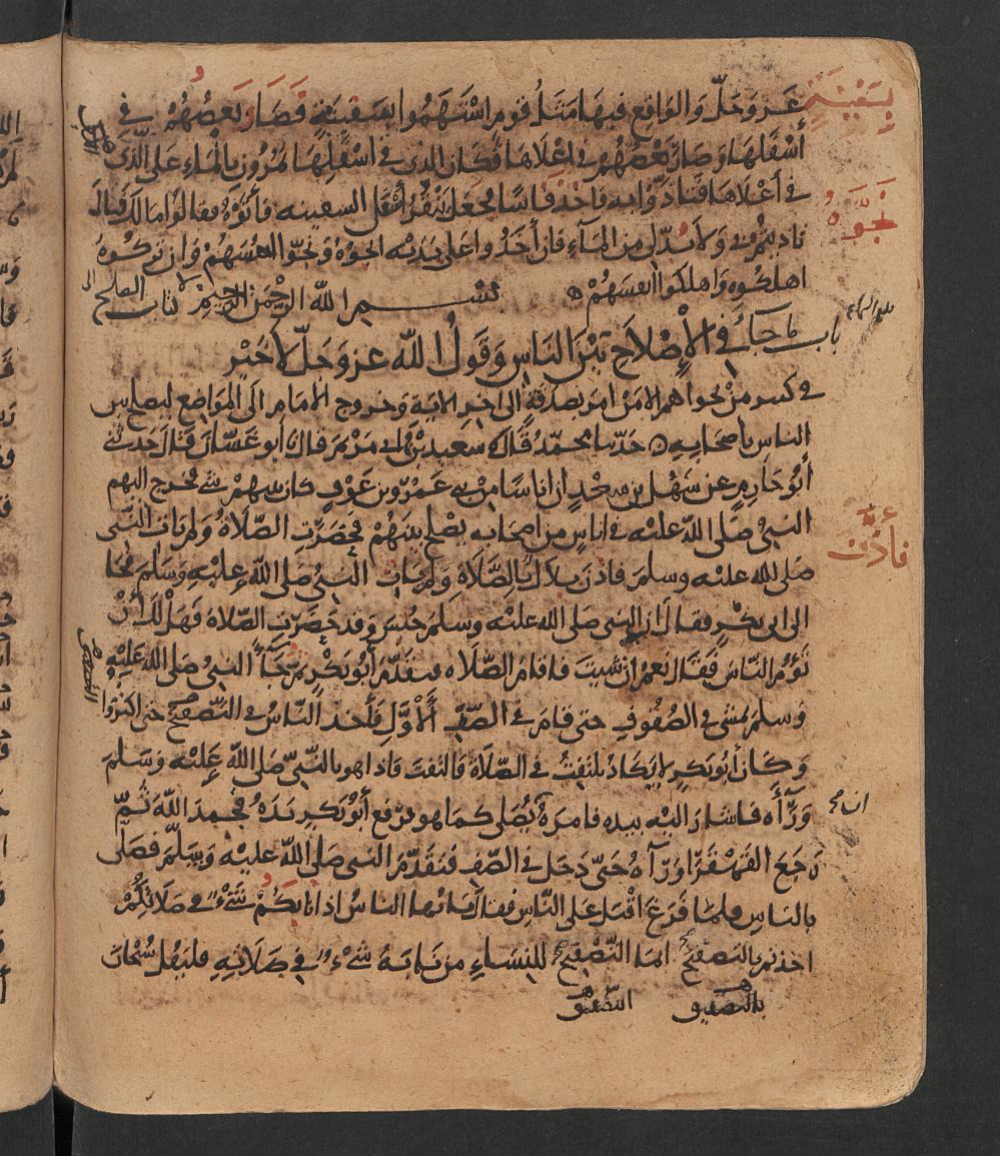 عز وجل والواقع فيها مثل قوم استهموا بسفينة فصار بعضهم في
أسفلها وصار بعضهم في أعلاها فكان الذي في أسفلها يمرون بالماء على الذي
في أعلاها فتأذوا به فأخذ فأسا فجعل ينقر أسفل السفينه فأتوه فقالوا مالك قال
تأذيتم بي ولا بد لي من الماء فإن أخذوا على يديه انجوه ونجوا انفسهم وان تركوه
اهلكوه واهلكوا انفسهم
بسم الله الرحمن الرحيم كتاب الصلح
باب ما جاء في الإصلاح بين الناس وقول الله عز وجل لا خير
في كثير من نجواهم الا من امر بصدقة الى اخر الاية وخروج الامام الى المواضع ليصلح بين
الناس بأصحابه حدثنا محمد قال سعيد بن ابي مريم قال ابو غسان قال حدثني
أبو حازم عن سهل بن سعد ان اناسا من بني عمرو بن عوف كان بينهم شي فخرج اليهم
النبي صلى الله عليه في اناس من اصحابه يصلح بينهم فحضرت الصلاة ولم يات النبي
صلى الله عليه وسلم فاذن بلال بالصلاة ولم يات النبي صلى الله عليه وسلم فجا
الى ابي بكر فقال ان النبي صلى الله عليه وسلم حبس وقد حضرت الصلاة فهل لك أن
تؤم الناس فقال نعم ان شيت فاقام الصلاه فتقدم أبو بكر ثم جاء النبي صلى الله عليه
وسلم يمشي في الصفوف حتى قام في الصف الأول فأخذ الناس في التصفيح حتى اكثروا
وكان أبو بكر لا يكاد يلتفت في الصلاة فالتفت فاذا هو بالنبي صلى الله عليه وسلم
ورآه فاشار اليه بيده فامره يصلي كما هو فرفع أبو بكر يده فحمد الله ثم
رجع القهقرا وراه حتى دخل في الصف فتقدم النبي صلى الله عليه وسلم فصلى
بالناس فلما فرغ اقبل على الناس فقال يا ايها الناس اذا نابكم شيء في صلاتكم
اخذتم بالتصفيح انما التصفيح للنساء من نابه شيء في صلاته فليقل سبحان
بالتصفيق التصفيق
بسفينة
نجوه
فأذن
ان